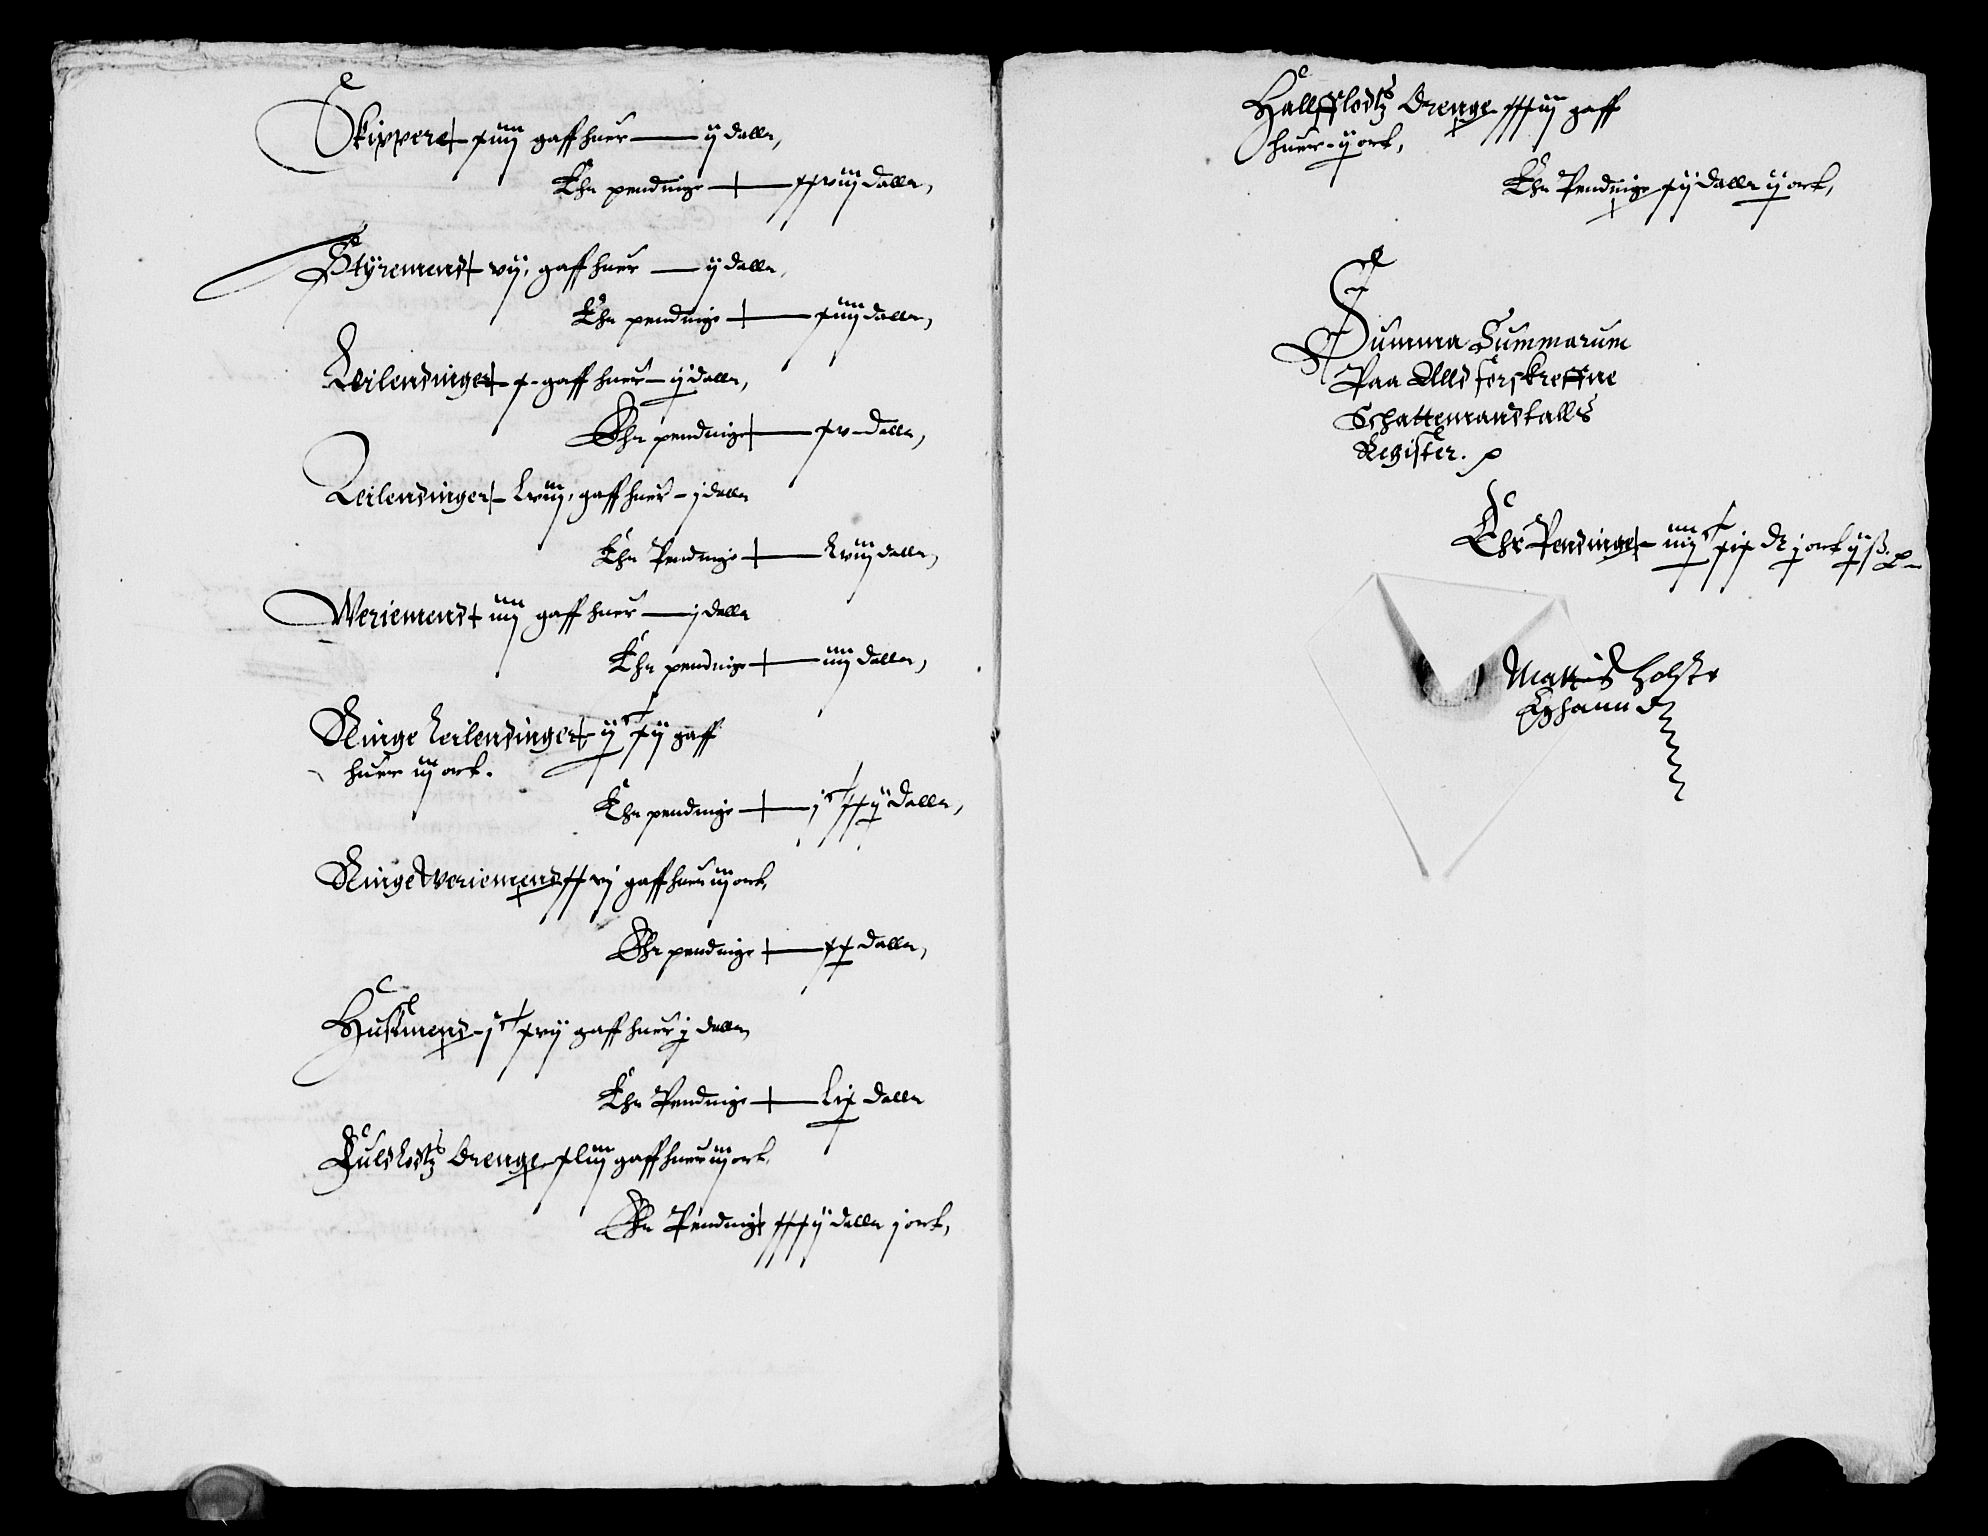 Skippere xiiij gaff huer — ij daller,
Ehr pendinge — xxviij daller,
Styremend vij, gaff huer — ij daller,
Ehr pendinge — xiiij daller,
Leilendinger x gaff huer — ij daller,
Ehr pendinge — xv daller,
Leilendinger lviij, gaff huer — j daller
Ehr Pendinge — lviij daller,
Weriemend iiij gaff huer — j daller
Ehr pendinge — iiij daller,
Ringe Leilendinger ijC xij gaff
huer iij ort.
Ehr pendinge — jC xxij daller,
Ringe Weriemend xxvj gaff huer iij ort,
Ehr pendinge — xx daller,
Husmend jC xvij gaff huer j daller,
Ehr Pendinge — lix daller
Fuldlodtz Drenge xliij gaff huer iij ort,
Ehr Pendinge xxxij daller j ort,
Hallfflodtz Drenge xxxiij gaff
huer ij ort,
Ehr Pendinge xij daller ij ort,
Summa Summarum
Paa Alld forskreffne
Schattemandtalls
Register.
Ehr Pendinge iiijC xix dr j ort ij ß.
Mattis Holste
Eghann